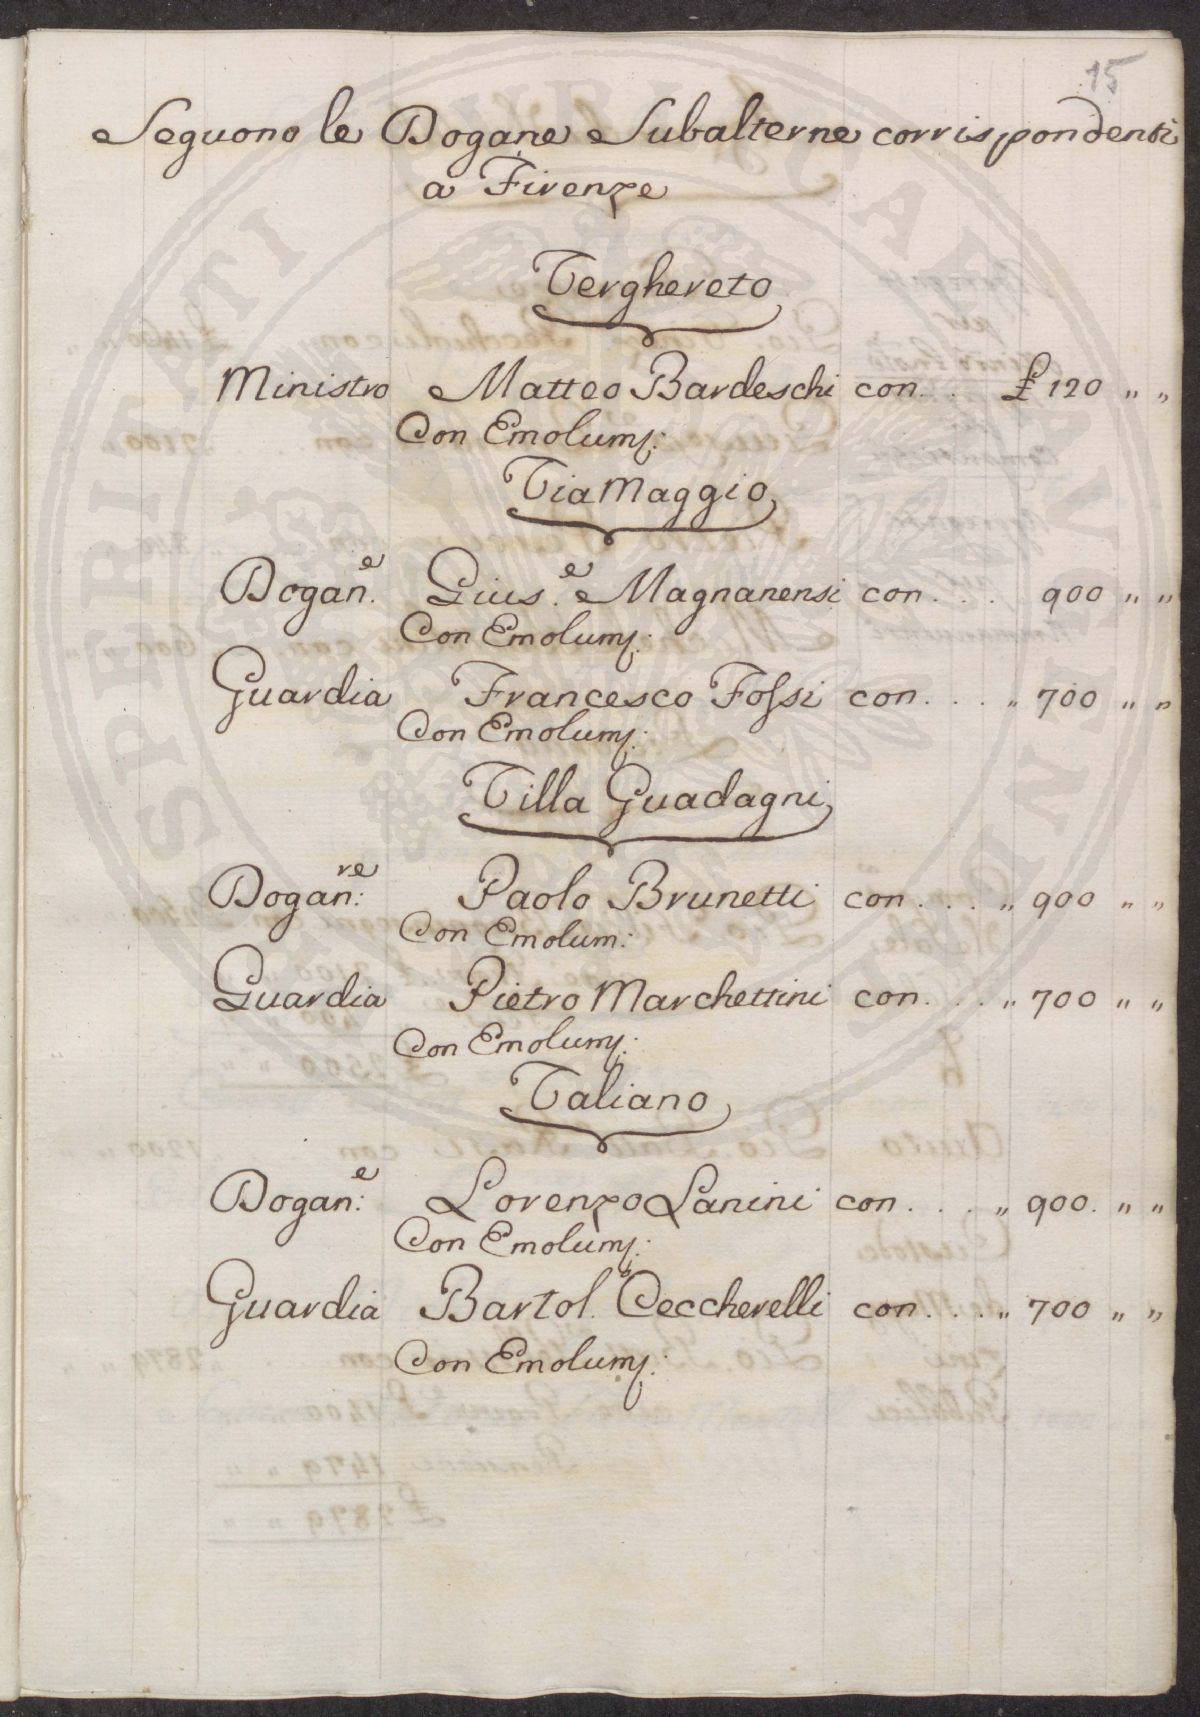 15
Seguono le Dogane Subalterne corrispondenti
a Firenze
Verghereto
Ministro Matteo Bardeschi con. . £ 120 " "
Con Emolumⱼ:
Viamaggio
Dogan.e Gius.e Magnanensi con . . . 900 " "
Con Emolumⱼ:
Guardia Francesco Fossi con . . . " 700 " "
Con Emolumⱼ:
Villa Guadagni
Dogan:re Paolo Brunetti con . . . " 900 " "
Con Emolum:
Guardia Pietro Marchettini con. . . " 700 " "
Con Emolumⱼ:
Valiano
Dogan:e Lorenzo Lanini con . . . " 900. " "
Con Emolumⱼ:
Guardia Bartol.o Ceccherelli con . . . " 700 " "
Con Emolumⱼ: